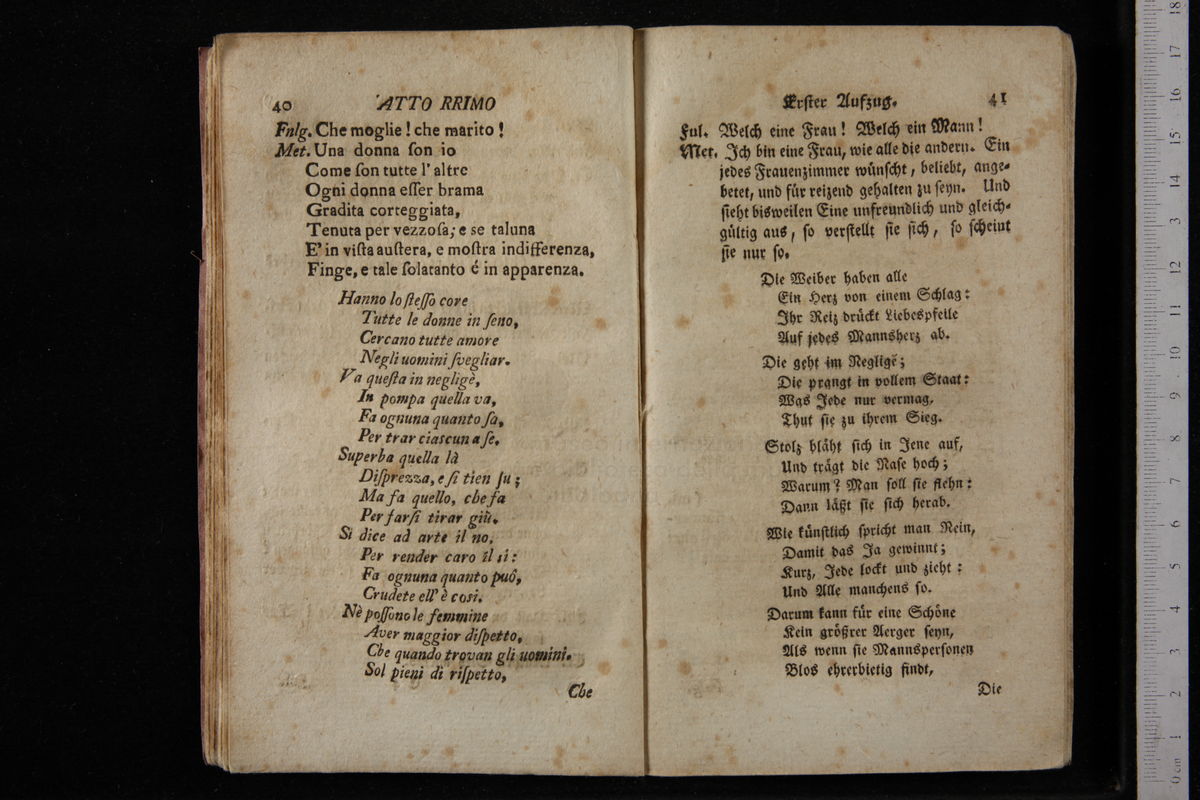 40 ATTO RRIMO
Fnlg. Che moglie! che marito!
Met. Una donna ſon io
Come ſon tutte l'altre
Ogni donna eſſer brama
Gradita corteggiata,
Tenuta per vezzoſa; e se taluna
E' in viſta auſtera, e moſtra indifferenza,
Finge, e tale ſolatanto é in apparenza.
Hanno lo ſteſſo core
Tutte le donne in ſeno,
Cercano tutte amore
Negli uomini ſvegliar.
Va queſta in negligè,
In pompa quella va,
Fa ognuna quanto ſa,
Per trar ciascun a ſe.
Superba quella là
Diſprezza, e ſi tien ſu;
Ma fa quello, che fa
Per farſi tirar giù.
Si dice ad arte il no,
Per render caro il sì:
Fa ognuna quanto puô,
Crudete ell' è cosi.
Nè poſſono le femmine
Aver maggior diſpetto,
Che quando trovan gli uomini.
Sol pieni di riſpetto,
Che
Erſter Aufzug. 41
Ful. Welch eine Frau! Welch ein Mann!
Met. Ich bin eine Frau, wie alle die andern. Ein
jedes Frauenzimmer wünſcht, beliebt, ange-
betet, und für reizend gehalten zu ſeyn. Und
ſieht bisweilen Eine unfreundlich und gleich-
gültig aus, ſo verſtellt ſie ſich, ſo ſcheint
ſie nur ſo.
Die Weiber haben alle
Ein Herz von einem Schlag:
Ihr Reiz drückt Liebespfeile
Auf jedes Mannsherz ab.
Die geht im Neglige;
Die prangt in vollem Staat:
Was Jede nur vermag,
Thut ſie zu ihrem Sieg.
Stolz bläht ſich in Jene auf,
Und trägt die Naſe hoch;
Warum? Man ſoll ſie flehn:
Dann läßt ſie ſich herab.
Wie künſtlich ſpricht man Nein,
Damit das Ja gewinnt;
Kurz, Jede lockt und zieht:
Und Alle manchens ſo.
Darum kann für eine Schöne
Kein größrer Aerger ſeyn,
Als wenn ſie Mannsperſonen
Blos ehrerbietig findt,
Die